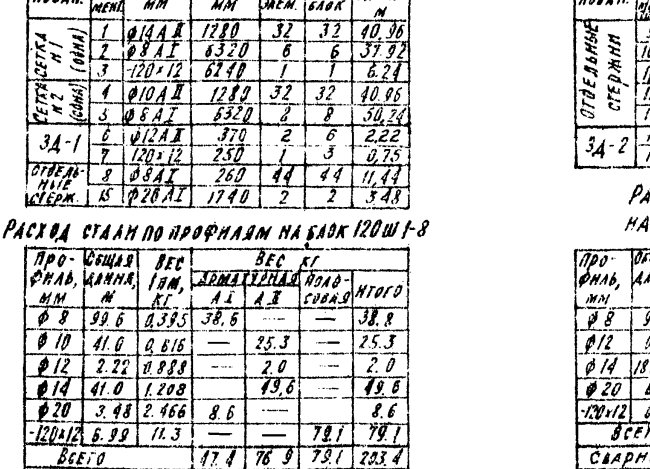 МЕНТ. ММ ММ ЭЛЕМ. БЛОК М
СЕТКА N1 (ОДНА) 1 ф14 А II 1280 32 32 40.96
2 ф8 А I 6320 6 6 37.92
3 -120×12 6240 1 1 6.24
СЕТКА N2 (ОДНА) 4 ф10 А II 1280 32 32 40.96
5 ф8 А I 6320 8 8 50,24
ЗД-1 6 ф12 А II 370 2 6 2,22
7 120×12 250 1 3 0,75
ОТДЕЛЬНЫЕ СТЕРЖ. 8 ф8 А I 260 44 44 11,44
15 ф20 А I 1740 2 2 3.48
РАСХОД СТАЛИ ПО ПРОФИЛЯМ НА БЛОК 120Ш 1-8
ПРОФИЛЬ, ММ ОБЩАЯ ДЛИНА, М ВЕС 1 ПМ, КГ ВЕС КГ
АРМАТУРНАЯ ПОЛОСОВАЯ ИТОГО
А I А II
ф 8 99.6 0,395 38,6 — — 38.8
ф 10 41.0 0,616 — 25.3 — 25.3
ф 12 2.22 0.888 — 2.0 — 2.0
ф 14 41.0 1.208 49,6 — 49.6
ф 20 3.48 2.466 8.6 — 8.6
-120×12 6.99 11.3 — — 79.1 79.1
ВСЕГО 47.4 76.9 79.1 203.4
ОТДЕЛЬНЫЕ СТЕРЖНИ
ЗД-2
РА
НА
ПРОФИЛЬ, ММ
ф 8
ф 12
ф 14 18
ф 20
-120×12
ВСЕ
СВАРН